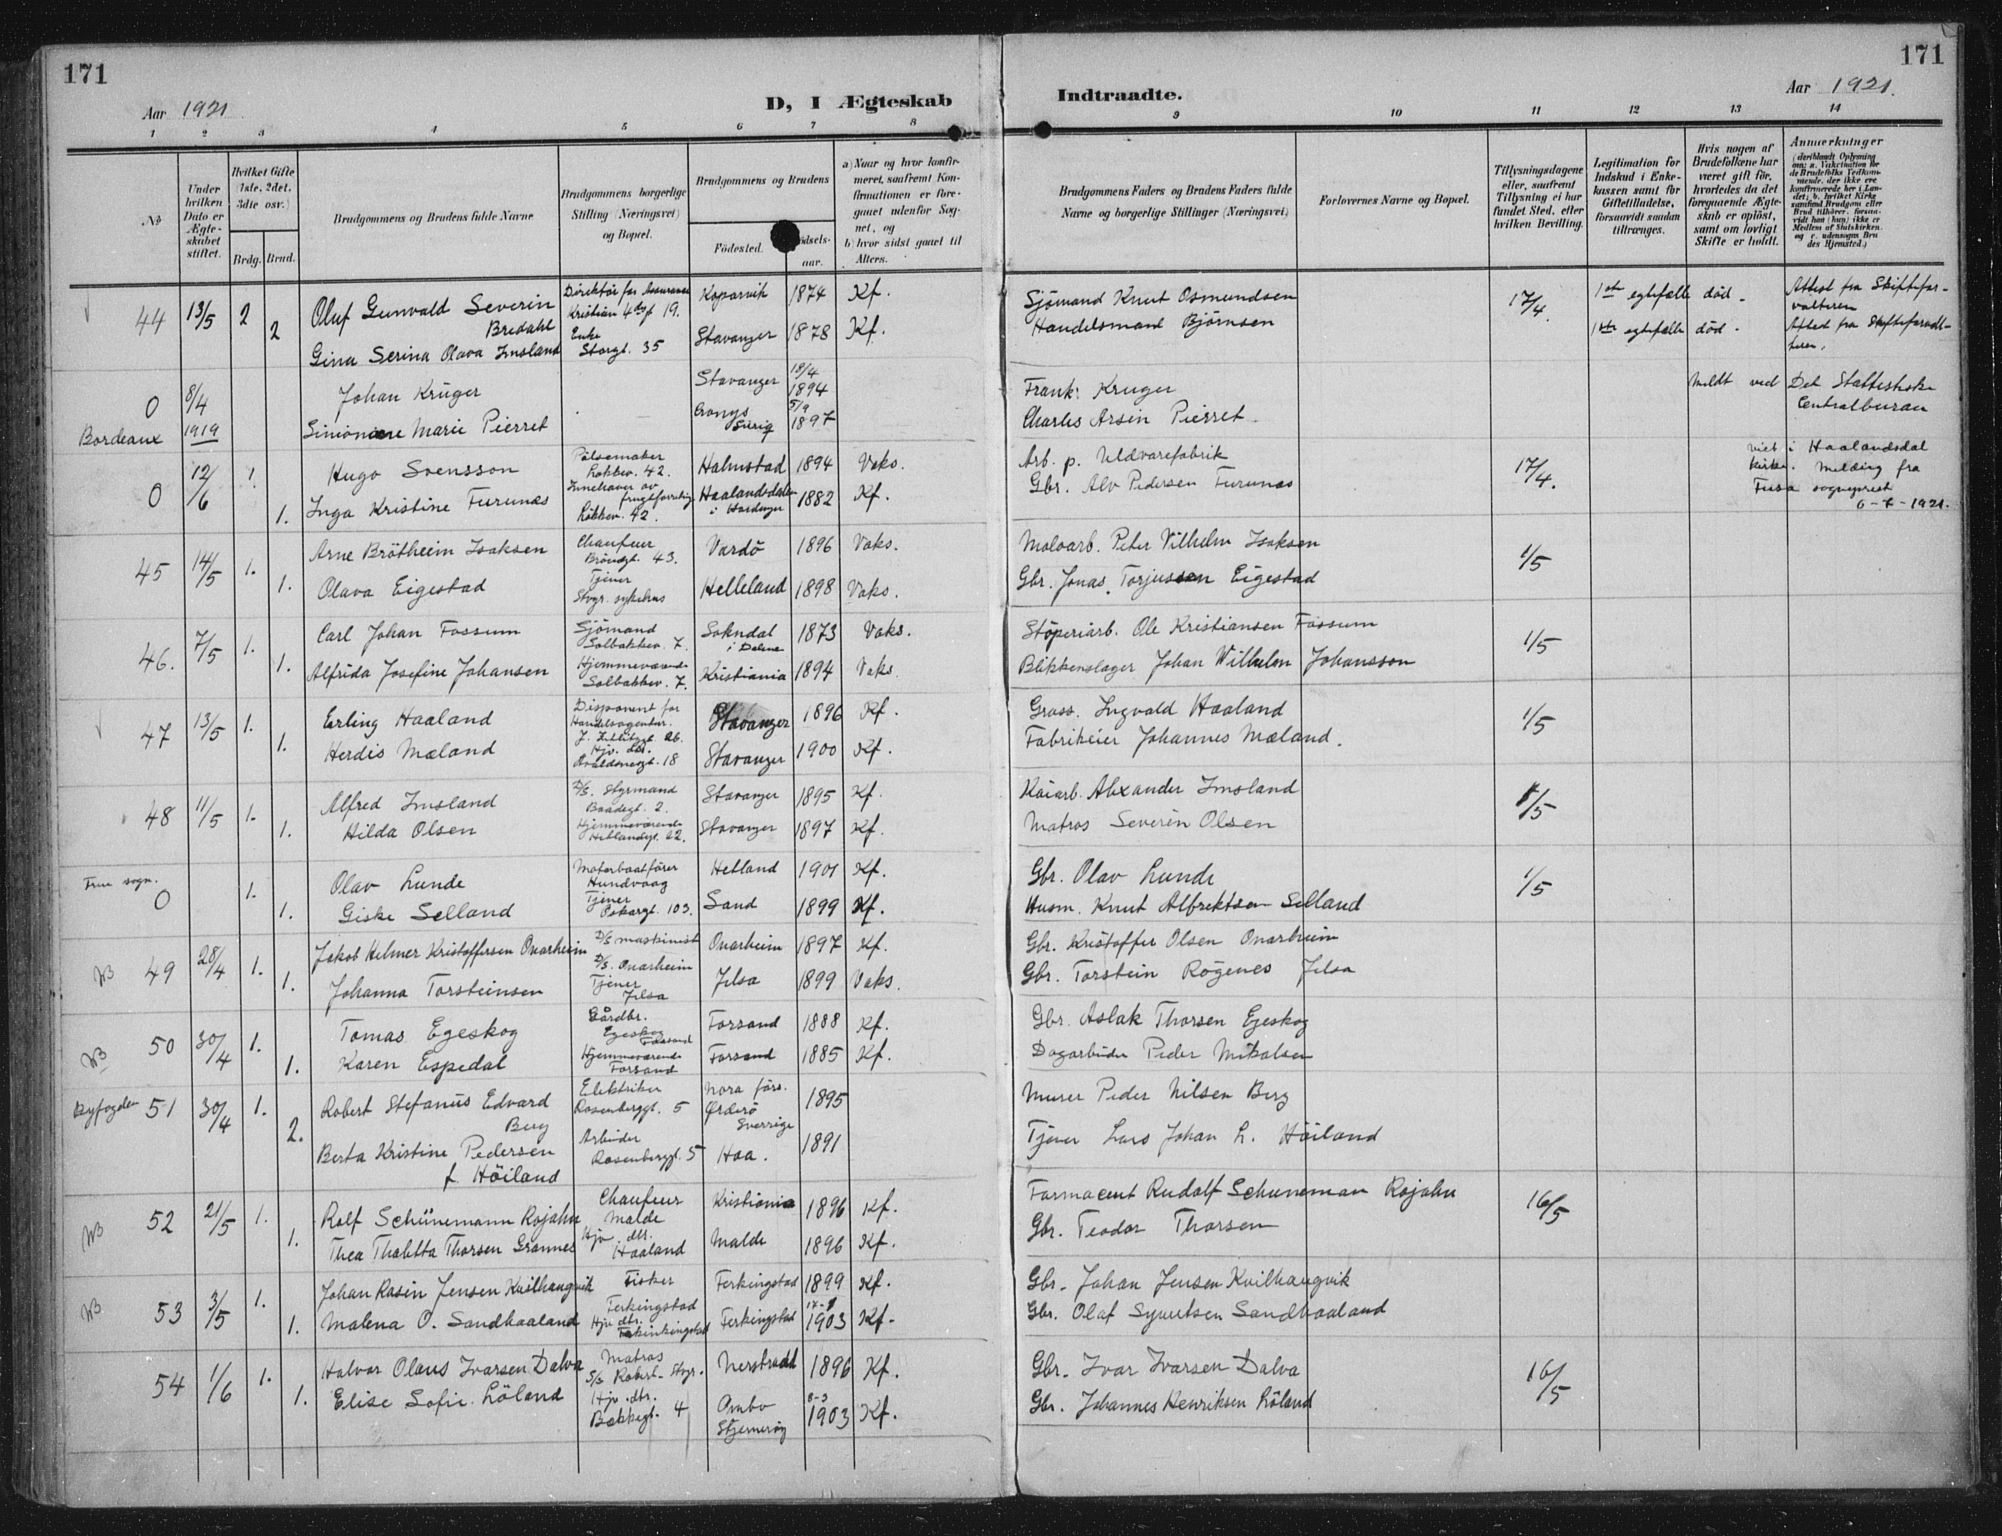 171
Aar 1921
D, I Ægteskab
Indtraadte.
Aar 1921.
171
1 2 3 4 5 6 7 8 9 10 11 12 13 14
No
Under hvilken Dato er Ægteskabet stiftet.
Hvilket Gifte 1ste, 2det, 3die osv.)
Brdg. Brud.
Brudgommens og Brudens fulde Navne
Brudgommens borgerlige Stilling (Næringsvei) og Bopæl.
Brudgommens og Brudens
Fødested.
aar.
a) Naar og hvor konfirmeret, saafremt Konfirmationen er foregaaet udenfor Sognet, og
b) hvor sidst gaaet til Alters.
Brudgommens Faders og Brudens Faders fulde Navne og borgerlige Stillinger (Næringsvei)
Forlovernes Navne og Bopæl.
Tillysningsdagene eller, saafremt Tillysning ei har fundet Sted, efter hvilken Bevilling.
Legitimation for Indskud i Enkekassen samt for Giftetilladelse, forsaavidt saadan tiltrænges.
Hvis nogen af Brudefolkene har været gift før, hvorledes da det foregaaende Ægteskab er opløst, samt om lovligt Skifte er holdt.
Anmerkninger
44 13/5 2 Oluf Gunvald Severin Bredahl Direktør for Assurance Kristian 4des gt 19. Kopervik 1874 Kf. Sjömand Knut Osmundsen 17/4. 1ste egtefælle død. Attest fra Skifteforvalteren
2 Gina Serina Olava Imsland Enke Storgt. 35 Stavanger 1878 Kf. Handelsmand Bjørnsen 1ste egtefælle død. Attest fra Skifteforvalteren.
0 Bordeaux 8/4 1919 Johan Krüger Stavanger 18/4 1894 Frank: Kruger Meldt ved Det Statistiske Centralbureau
Marie Pierret 5/9 1897 Charles Arsin Pierret
0 12/6 1. Hugo Svensson Pølsemaker Løkkev. 42. Halmstad 1894 Vaks. Arb. p. Uldvarefabrik 17/4. viet i Haalandsdal Kirke. Melding fra Fusa sogneprest
1. Inga Kristine Furunæs Innehaver av frugtforretng Løkkev. 42. Haalandsdalen i Hardanger 1882 Kf. Gbr. Alv Pedersen Furunæs 1921.
45 14/5 1. Arne Brötheim Isaksen Chaufeur 43. Vardö 1896 Vaks. Moloarb. Peter Vilhelm Isaksen 1/5
1. Olava Eigestad Tjener Stvgr. sykehus Helleland 1898 Vaks. Gbr. Jonas Torjussen Eigestad
46. 7/5 1. Carl Johan Fossum Sjömand Solbakkev. 7. Sokndal i Dalene 1873 Vaks. Støperiarb. Ole Kristiansen Fossum 1/5
1. Alfrida Josefine Johansen Hjemmeværende Solbakkev. 7. Kristiania 1894 Vaks. Blikkenslager Johan Wilhelm Johansson
47 13/5 1. Erling Haaland Disponent for Handelsagentur. Stavanger 1896 Kf. Gross. Ingvald Haaland 1/5
1. Herdis Mæland Hjv. dtr. 18 Stavanger 1900 Kf. Fabrikeier Johannes Mæland.
48 11/5 1. Alfred Imsland D/S. Styrmand Baadegt. 2. Stavanger 1895 Kf. Kaiarb. Alexander Imsland 1/5
1. Hilda Olsen Hjemmeværende Hetlandsgt. 22. Stavanger 1897 Kf. Matros Severin Olsen
Frue sogn. 0 1. Olav Lunde Motorbaatfører Hundvaag Hetland 1901 Kf. Gbr. Olav Lunde 1/5
1. Giske Selland Tjener Oskarsgt. 103. Sand 1899 Kf. Husm. Knut Albrektsen Selland
49 28/4 1. Jakob Helmer Kristoffersen Onarheim D/S maskinist D/S. Onarheim Onarheim 1897 Kf. Gbr. Kristoffer Olsen Onarheim
1. Johanna Torsteinsen Tjener Jelsa Jelsa 1899 Vaks. Gbr. Torstein Rögenes Jelsa
50 30/4 1. Tomas Egeskog Gårdbr. Egeskog Forsand Forsand 1888 Kf. Gbr. Aslak Thorsen Egeskog
1. Karen Espedal Hjemmeværende Forsand Forsand 1885 Kf. Dagarbeider Peder Mikalsen
Byfogden 51 30/4 1. Robert Stefanus Edvard Berg Elektriker Rosenberggt. 5 Nora förs. Örebro Sverrige 1895 Murer Peder Nilsen Berg
2. Berta Kristine Pedersen f. Höiland Arbeider Rosenberggt. 5 Haa. 1891 Tjener Lars Johan L. Höiland
52 21/5 1. Rolf Schünemann Rojahn Chaufeur Malde Kristiania 1896 Kf. Farmaceut Rudolf Schuneman Rojahn 16/5
1. Thea Thalitta Thorsen Grannes Hjv. dtr. Haaland Malde 1896 Kf. Gbr. Teodor Thorsen
53 3/5 1. Johan Rasin Jensen Kvilhaugvik Fisker Ferkingstad Ferkingstad 1899 Kf. Gbr. Johan Jensen Kvilhaugvik
1. Malena O. Sandhaaland Hjv. dtr. Ferkingstad 1903 Kf. Gbr. Olaf Syvertsen Sandhaaland
54 1/6 1. Halvor Olaus Ivarsen Dalva Matros S/S Robert Stvgr. Nerstrand 1896 Kf. Gbr. Ivar Ivarsen Dalva 16/5
1. Elise Sofie Löland Hjv. dtr. Bakkegt. 4 Ombo Stjernerøy 8-3 1903 Kf. Gbr. Johannes Henriksen Löland